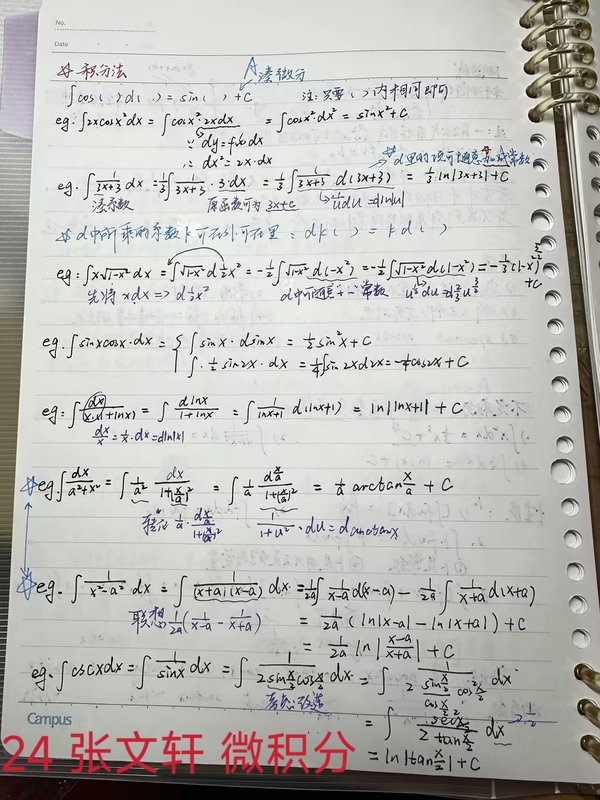 No.
Date
☆ 一积分法 凑微分
∫cos( )d( ) = sin( ) + C 注: 只要( )内相同即可
eg. ∫2xcosx²dx = ∫cosx²·2xdx = ∫cosx²dx² = sinx²+C
∵ dy=f'(x)dx
∴ dx²=2x·dx
☆ d里的项可随意加减常数
eg. ∫1/(3x+3) dx = 1/3∫1/(3x+3)·3·dx = 1/3∫1/(3x+3) d(3x+3) = 1/3 ln|3x+3|+C
凑系数 原函数可为 3x+c 1/u du=dln|u|
☆ d中所乘的系数k可在外可在里: dk( ) = kd( )
eg: ∫x√(1-x²) dx = ∫√(1-x²) d½x² = -½∫√(1-x²) d(-x²) = -½∫√(1-x²) d(1-x²) = -⅓(1-x²)^(3/2) +C
先将xdx => d½x² d中可随意"+-"常数 u^½du=d⅔u^(3/2)
eg. ∫sinxcosx·dx = { ∫sinx·dsinx = ½sin²x+C
∫·½sin2x·dx = ¼∫sin2xd2x = -¼cos2x+C
eg: ∫dx/(x·(1+lnx)) = ∫dlnx/(1+lnx) = ∫1/(lnx+1) d(lnx+1) = ln|lnx+1|+C
dx/x = 1/x·dx = dln|x|
☆ eg. ∫dx/(a²+x²) = ∫1/a² dx/(1+(x/a)²) = ∫1/a d(x/a)/(1+(x/a)²) = 1/a arctan x/a + C
1/a·d(x/a)/(1+(x/a)²) 1/(1+u²)·du=darctanx
☆ eg. ∫1/(x²-a²) dx = ∫1/((x+a)(x-a)) dx = 1/2a∫1/(x-a) d(x-a) - 1/2a∫1/(x+a) d(x+a)
联想 1/2a(1/(x-a) - 1/(x+a)) = 1/2a (ln|x-a| - ln|x+a|) + C
= 1/2a ln|(x-a)/(x+a)| + C
eg. ∫cscxdx = ∫1/sinx dx = ∫1/(2sin(x/2)cos(x/2)) dx = ∫1/(2 (sin(x/2)/cos(x/2)) cos²(x/2)) dx
= ∫sec²(x/2)/(2tan(x/2)) dx
= ln|tan x/2| + C
Campus
24 张文轩 微积分